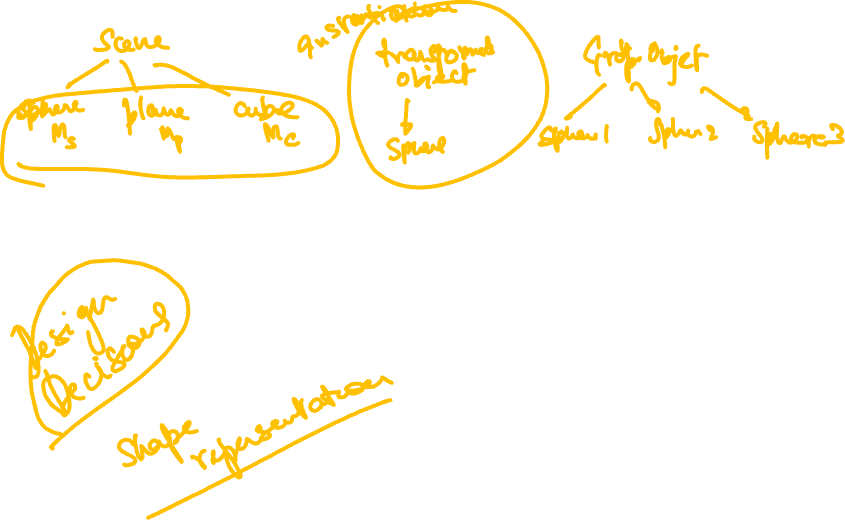 Scene
sphere plane cube
Ms Mp Mc
transformed
object
Sphere
Group Objet
Sphere 1 Spher 2 Sphere 3
Design
Decisions
Shape
representation